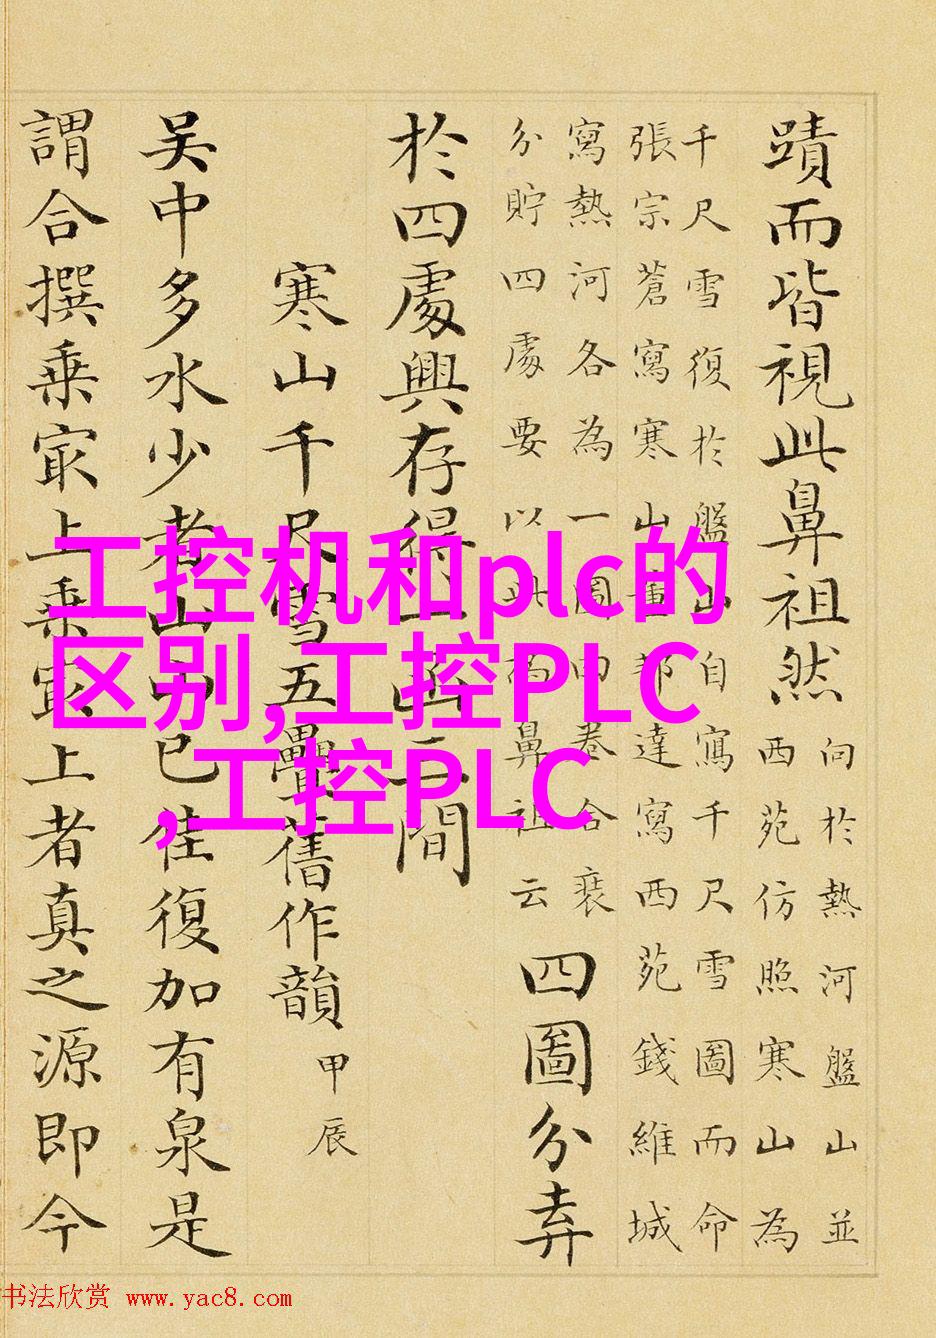 蹟而皆視此鼻祖然
向於熱河盤山並
西苑仿照寒山為
千尺雪復於盤山自寫千尺雪圖而命
張宗蒼寫寒山董邦達寫西苑錢維城
寫熱河各為一圖四卷合裝
分貯四處要以此為鼻祖云
四圖分弆
於四處興存得間
寒山千尺雪五疊舊作韻 甲辰
吳中多水少者山已佳復加有泉是
謂合撰乘㝡上乘㝡上者真之源即今
工控机和plc的
区别,工控PLC
,工控PLC
书法欣赏 www.yac8.com